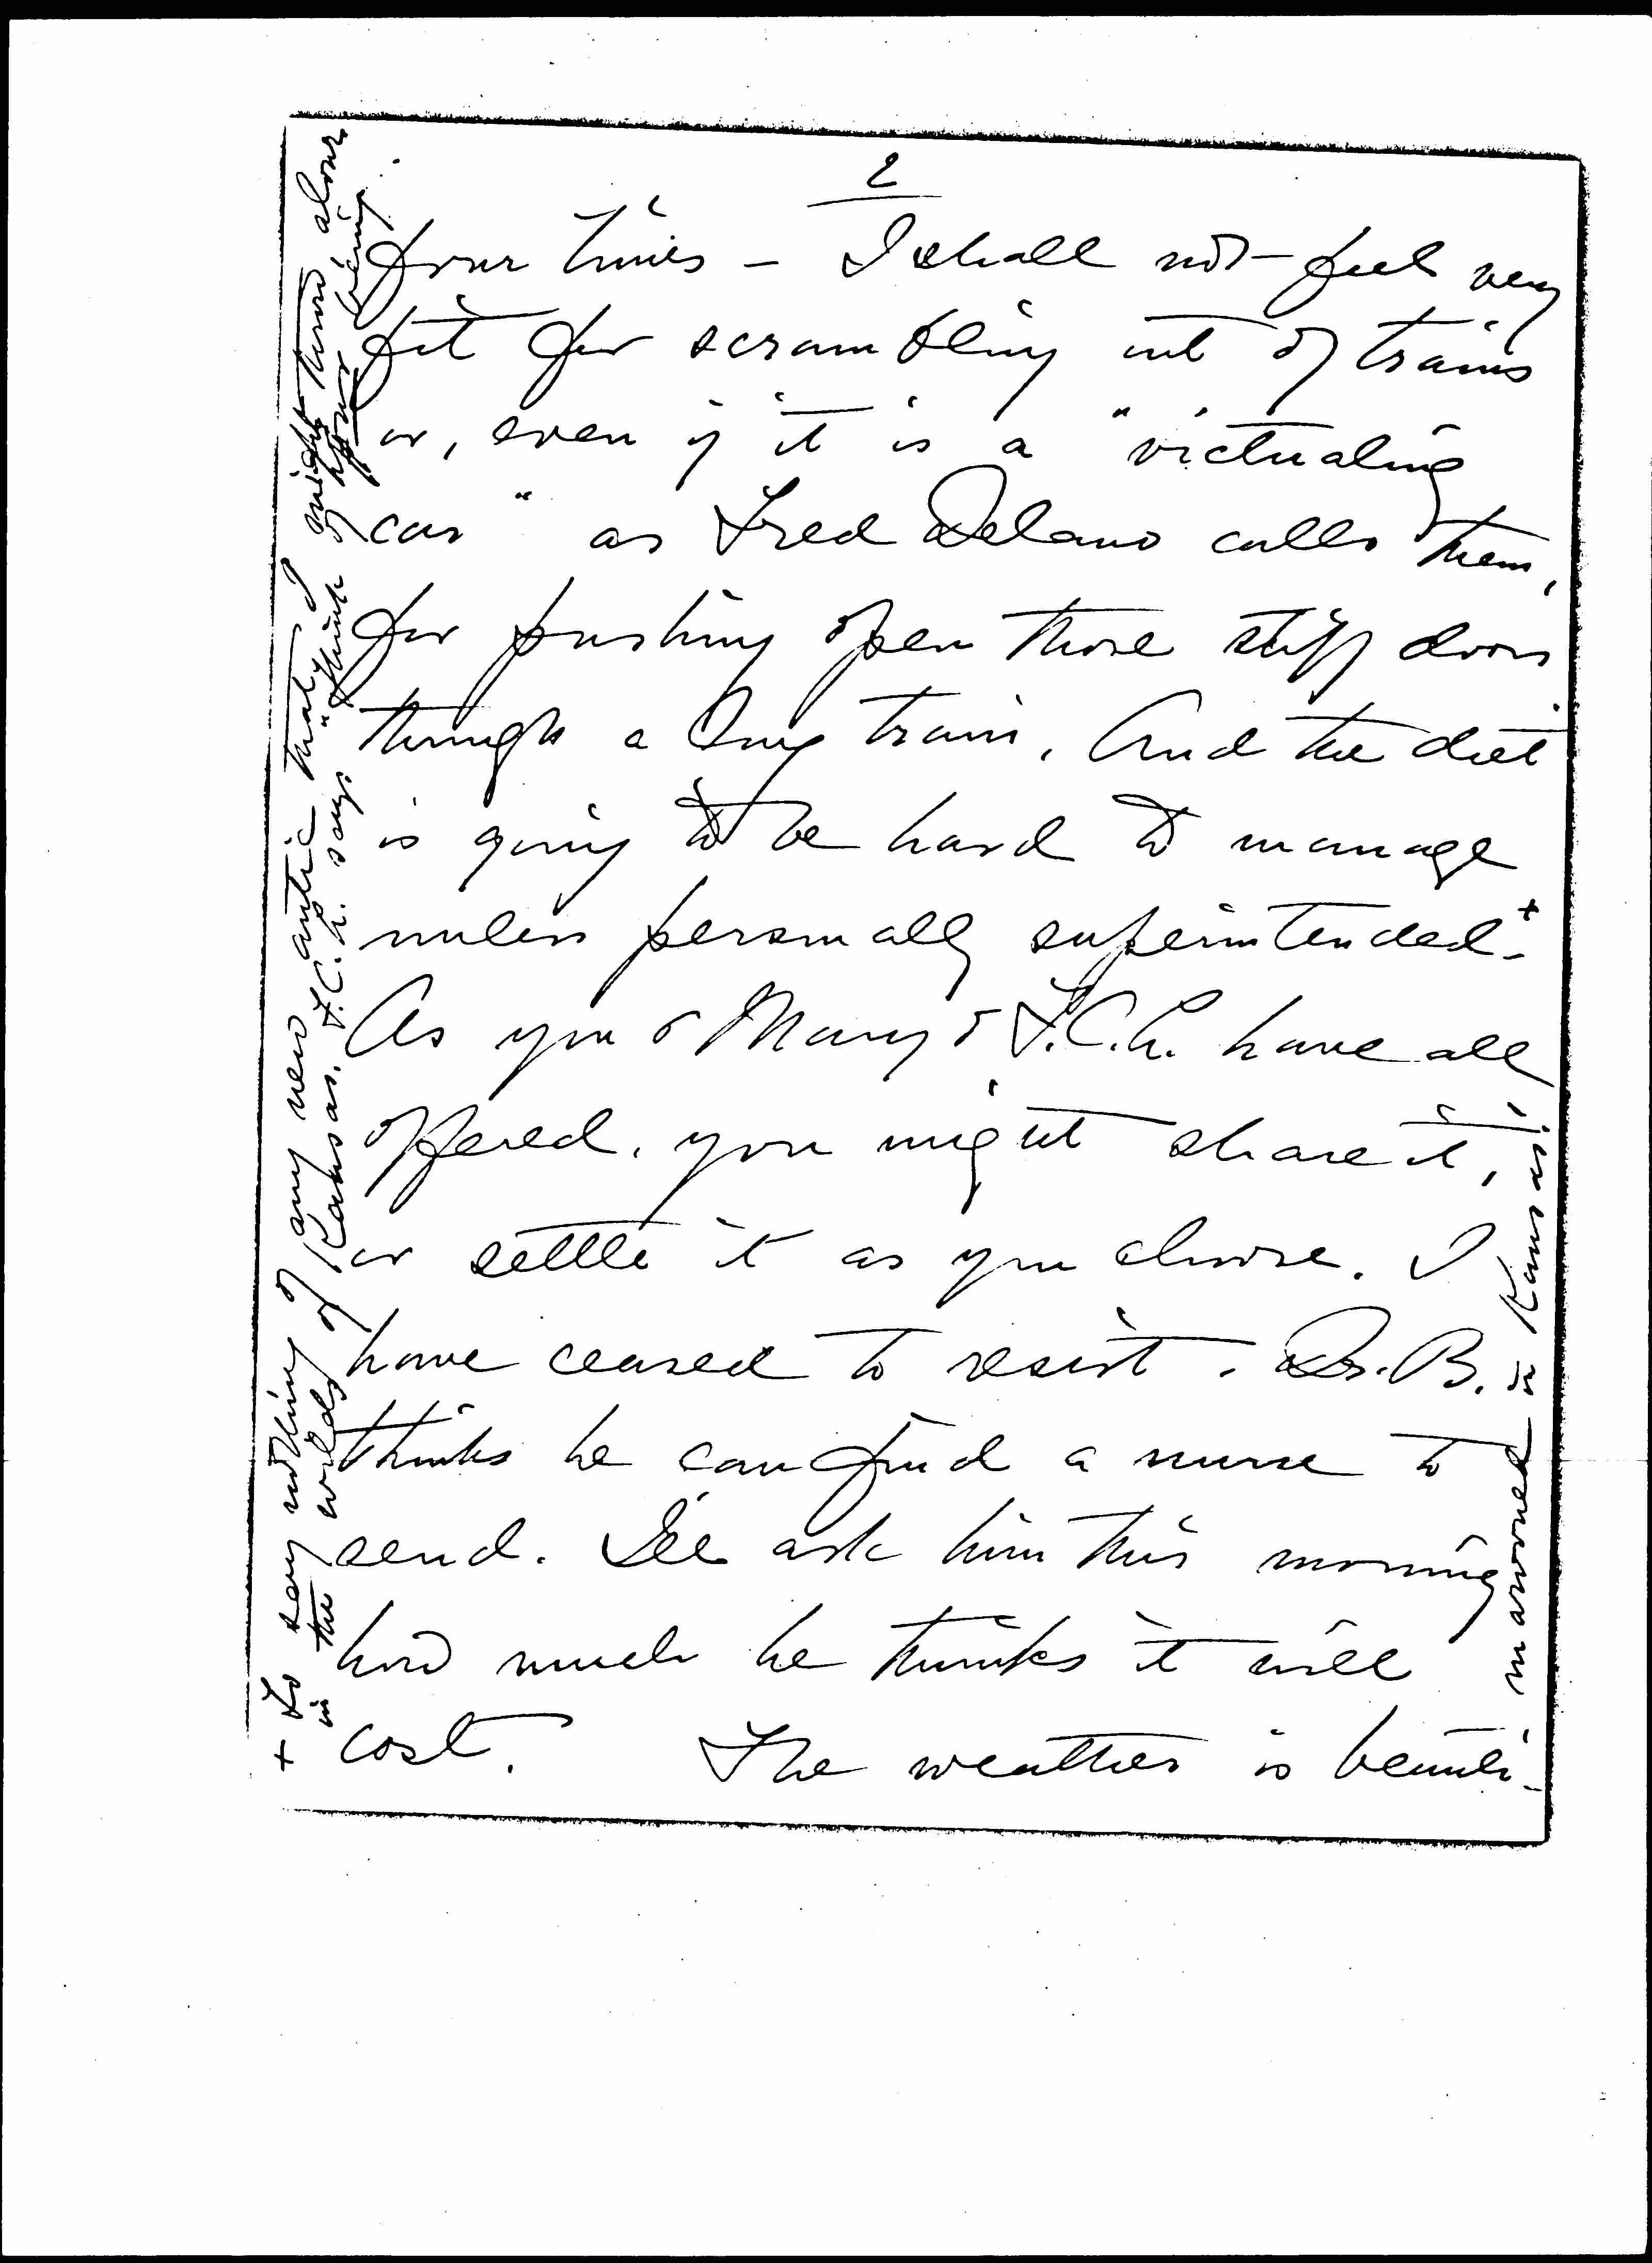 2
four times – I shall not feel very
fit for scrambling out of trains
or, even if it is a "victualing
car" as Fred Delano calls them,
for pushing open those stiff doors
through a long train. And the diet
is going to be hard to manage
unless personally superintended+.
As you & Mary & F.C.L. have all
offered, you might share it,
or settle it as you choose. I
have ceased to resist. Dr. B.
thinks he can find a nurse to
send. I'll ask him this morning
how much he thinks it will
cost. The weather is beauti-
+ To say nothing of any new antic that I might throw, alone
in the wilds of Kansas. F.C.L. says "Think of your being
marooned in Kansas!"